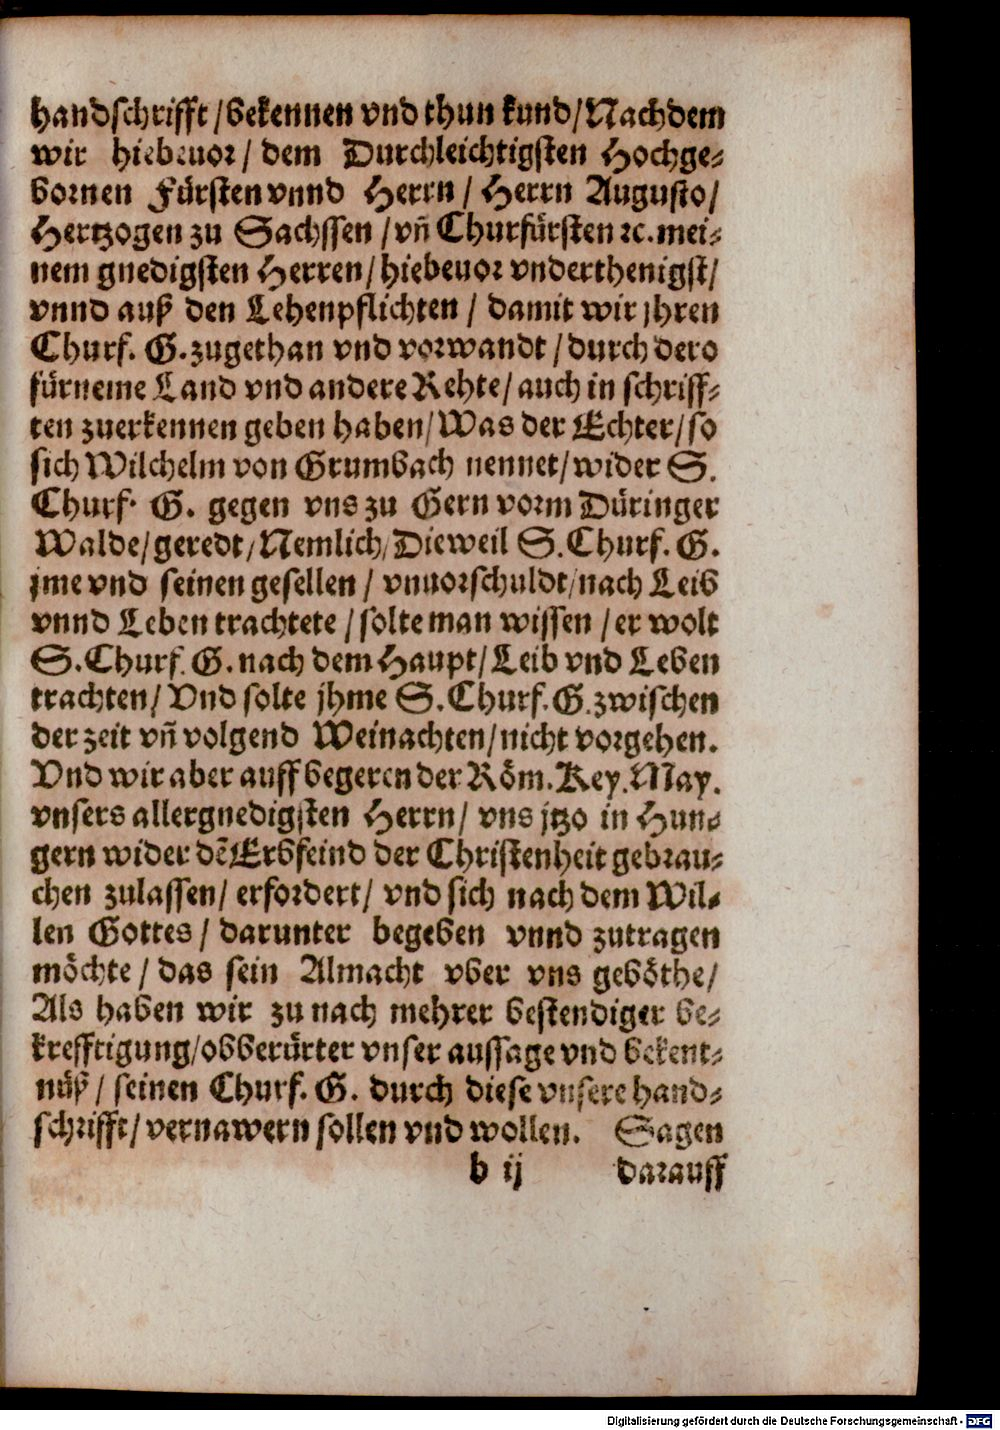 handschrifft / bekennen vnd thun kund / Nachdem
wir hiebeuor / dem Durchleichtigsten Hochge-
bornen Fürsten vnnd Herrn / Herrn Augusto /
Hertzogen zu Sachssen / vñ Churfürsten ꝛc. mei-
nem gnedigsten Herren / hiebeuor vnderthenigst /
vnnd auß den Lehenpflichten / damit wir jhren
Churf. G. zugethan vnd vorwandt / durch dero
fürneme Land vnd andere Rehte / auch in schriff-
ten zuerkennen geben haben / Was der Echter / so
sich Wilchelm von Grumbach nennet / wider S.
Churf. G. gegen vns zu Gern vorm Düringer
Walde / geredt / Nemlich / Dieweil S. Churf. G.
jme vnd seinen gesellen / vnuorschuldt / nach Leib
vnnd Leben trachtete / solte man wissen / er wolt
S. Churf. G. nach dem Haupt / Leib vnd Leben
trachten / Vnd solte jhme S. Churf. G. zwischen
der zeit vñ volgend Weinachten / nicht vorgehen.
Vnd wir aber auff begeren der Röm. Key. May.
vnsers allergnedigsten Herrn / vns jtzo in Hun-
gern wider dē Erbfeind der Christenheit gebrau-
chen zulassen / erfordert / vnd sich nach dem Wil-
len Gottes / darunter begeben vnnd zutragen
möchte / das sein Almacht vber vns geböthe /
Als haben wir zu nach mehrer bestendiger be-
krefftigung / obberürter vnser aussage vnd bekent-
nüß / seinen Churf. G. durch diese vnsere hand-
schrifft / vernawern sollen vnd wollen. Sagen
b ij darauff
Digitalisierung gefördert durch die Deutsche Forschungsgemeinschaft - DFG